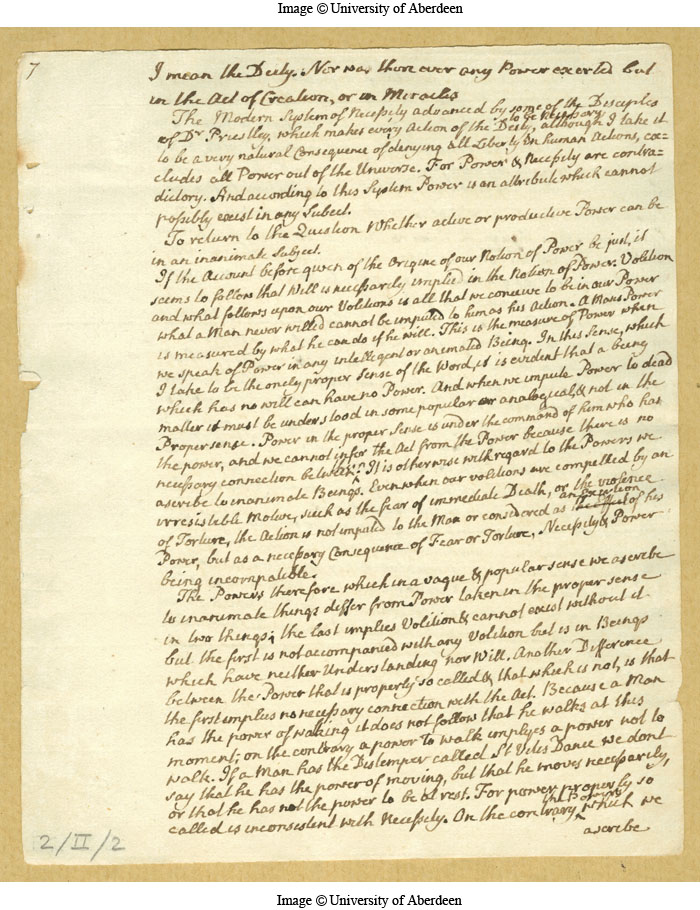 Image © University of Aberdeen
7
I mean the Deity. Nor was there ever any Power exerted but
in the Act of Creation, or in Miracles
The Modern System of Necessity advanced by some of the Desciples
of Dr Priestley, which makes every Action of the Deity to be necessary, although I take it
to be a very natural Consequence of denying all Liberty in human Actions, ex=
cludes all Power out of the Universe. For Power & Necessity are contra=
dictory. And according to this System Power is an attribute which cannot
possibly exist in any Subect.
To return to the Question Whether active or productive Power can be
in an inanimate Subject.
If the Account before given of the Origine of our Notion of Power be just, it
seems to follow that Will is necessarily implied in the Notion of Power. Volition
and what follows upon our Volitions is all that we conceive to be in our Power
what a Man never willed cannot be imputed to him as his Action. A Mans Power
is measured by what he can do if he will. This is the measure of Power when
we speak of Power in any intelligent or animated Being. In this Sense, which
I take to be the onely proper Sense of the Word, it is evident that a being
which has no will can have no Power. And when we impute Power to dead
matter it must be understood in some popular or analogical, & not in the
Proper sense. Power in the proper Sense is under the command of him who has
the power, and we cannot infer the Act from the Power because there is no
necessary connection between It is otherwise with regard to the Powers we
ascribe to inanimate Beings. Even when our volitions are compelled by an
irresistable Motive, such as the fear of immediate Death, or the violence
of Torture, the Action is not imputed to the Man or considered as the effect an exertion of his
Power, but as a necessary Consequence of Fear or Torture, Necessity & Power
being incompatible.
The Powers therefore which in a vague & popular sense we ascribe
to inanimate things differ from Power taken in the proper sense
in two things; the last implies Volition & cannot exist without it
but the first is not accompanied with any Volition but is in Beings
which have neither Understanding nor Will. Another Difference
between the Power that is properly so called & that which is not, is that
the first implies no necessary connection with the Act. Because a Man
has the power of walking it does not follow that he walks at this
moment; on the contrary a power to walk implyes a power not to
walk. If a Man has the Distemper called St Vitus Dance we dont
say that he has the power of moving, but that he moves necessarily,
or that he has not the power to be at rest. For power properly so
called is inconsistent with Necessity. On the contrary the Powers which we
ascribe
2/II/2
Image © University of Aberdeen